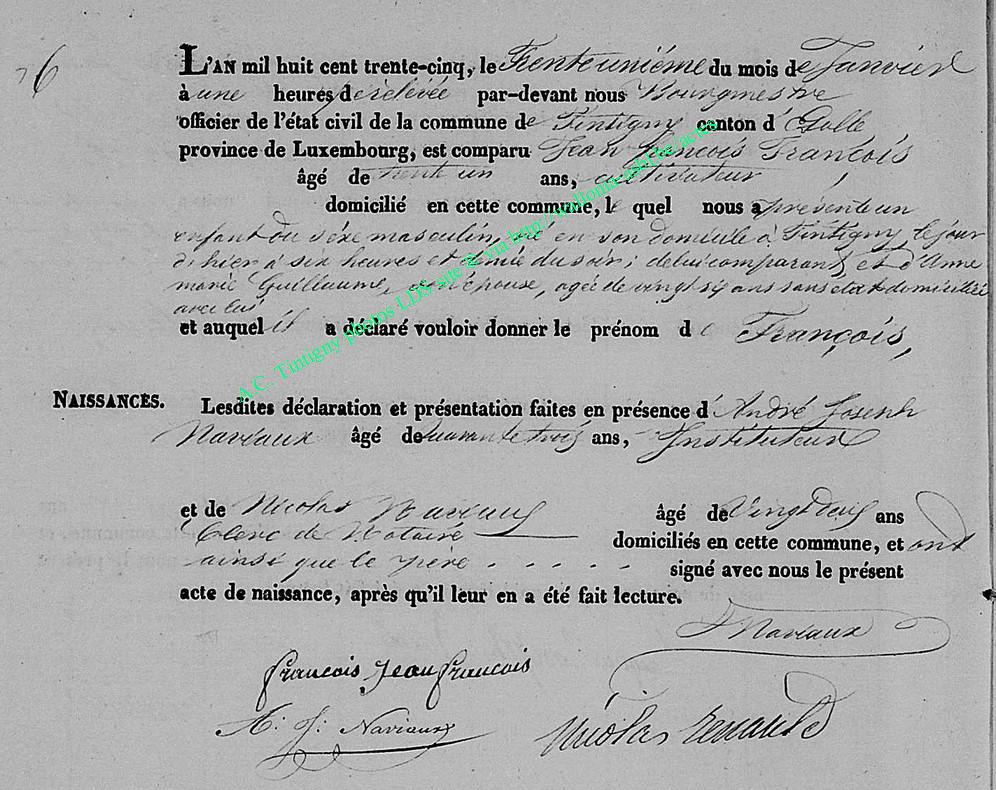 76
L'AN mil huit cent trente-cinq, le Trente unième du mois de Janvier
à une heures de relevée par-devant nous Bourgmestre
officier de l'état civil de la commune de Tintigny canton d'Etalle
province de Luxembourg, est comparu Jean François François
âgé de trente un ans, cultivateur
domicilié en cette commune, le quel nous a présenté un
enfant du séxe masculin, né en son domicile à Tintigny, le jour
d'hier à six heures et demie du soir; de lui comparant, et d'Anne
marie Guillaume, son épouse, agée de vingt six ans sans état domiciliée
avec lui
et auquel il a déclaré vouloir donner le prénom de François,
NAISSANCES. Lesdites déclaration et présentation faites en présence d'André Joseph
Naviaux âgé de quarante trois ans, Instituteur
et de Nicolas âgé de Vingt deux ans
Clerc de Notaire domiciliés en cette commune, et ont
ainsi que le père . . . . . signé avec nous le présent
acte de naissance, après qu'il leur en a été fait lecture.
Naviaux
francois Jean francois
A: J: Naviaux
Nicolas
A.C. Tintigny photos LDS site & via http://wallonia-asbl.be/actes